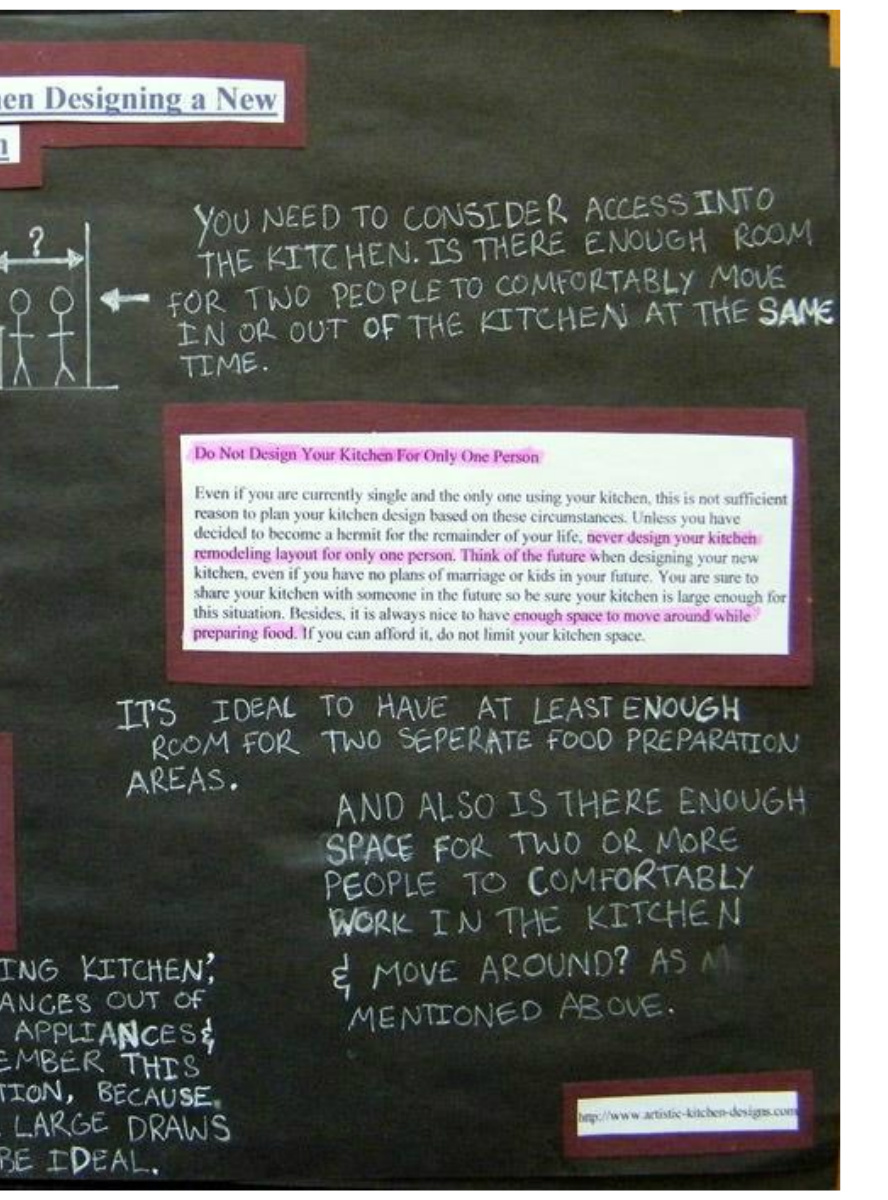 en Designing a New
?
YOU NEED TO CONSIDER ACCESS INTO
THE KITCHEN. IS THERE ENOUGH ROOM
FOR TWO PEOPLE TO COMFORTABLY MOVE
IN OR OUT OF THE KITCHEN AT THE SAME
TIME.
Do Not Design Your Kitchen For Only One Person
Even if you are currently single and the only one using your kitchen, this is not sufficient
reason to plan your kitchen design based on these circumstances. Unless you have
decided to become a hermit for the remainder of your life, never design your kitchen
remodeling layout for only one person. Think of the future when designing your new
kitchen, even if you have no plans of marriage or kids in your future. You are sure to
share your kitchen with someone in the future so be sure your kitchen is large enough for
this situation. Besides, it is always nice to have enough space to move around while
preparing food. If you can afford it, do not limit your kitchen space.
IT'S IDEAL TO HAVE AT LEAST ENOUGH
ROOM FOR TWO SEPERATE FOOD PREPARATION
AREAS.
AND ALSO IS THERE ENOUGH
SPACE FOR TWO OR MORE
PEOPLE TO COMFORTABLY
WORK IN THE KITCHEN
& MOVE AROUND? AS
MENTIONED ABOVE.
ING KITCHEN,
ANCES OUT OF
APPLIANCES &
EMBER THIS
TION, BECAUSE
LARGE DRAWS
BE IDEAL.
http://www.artistic-kitchen-designs.com